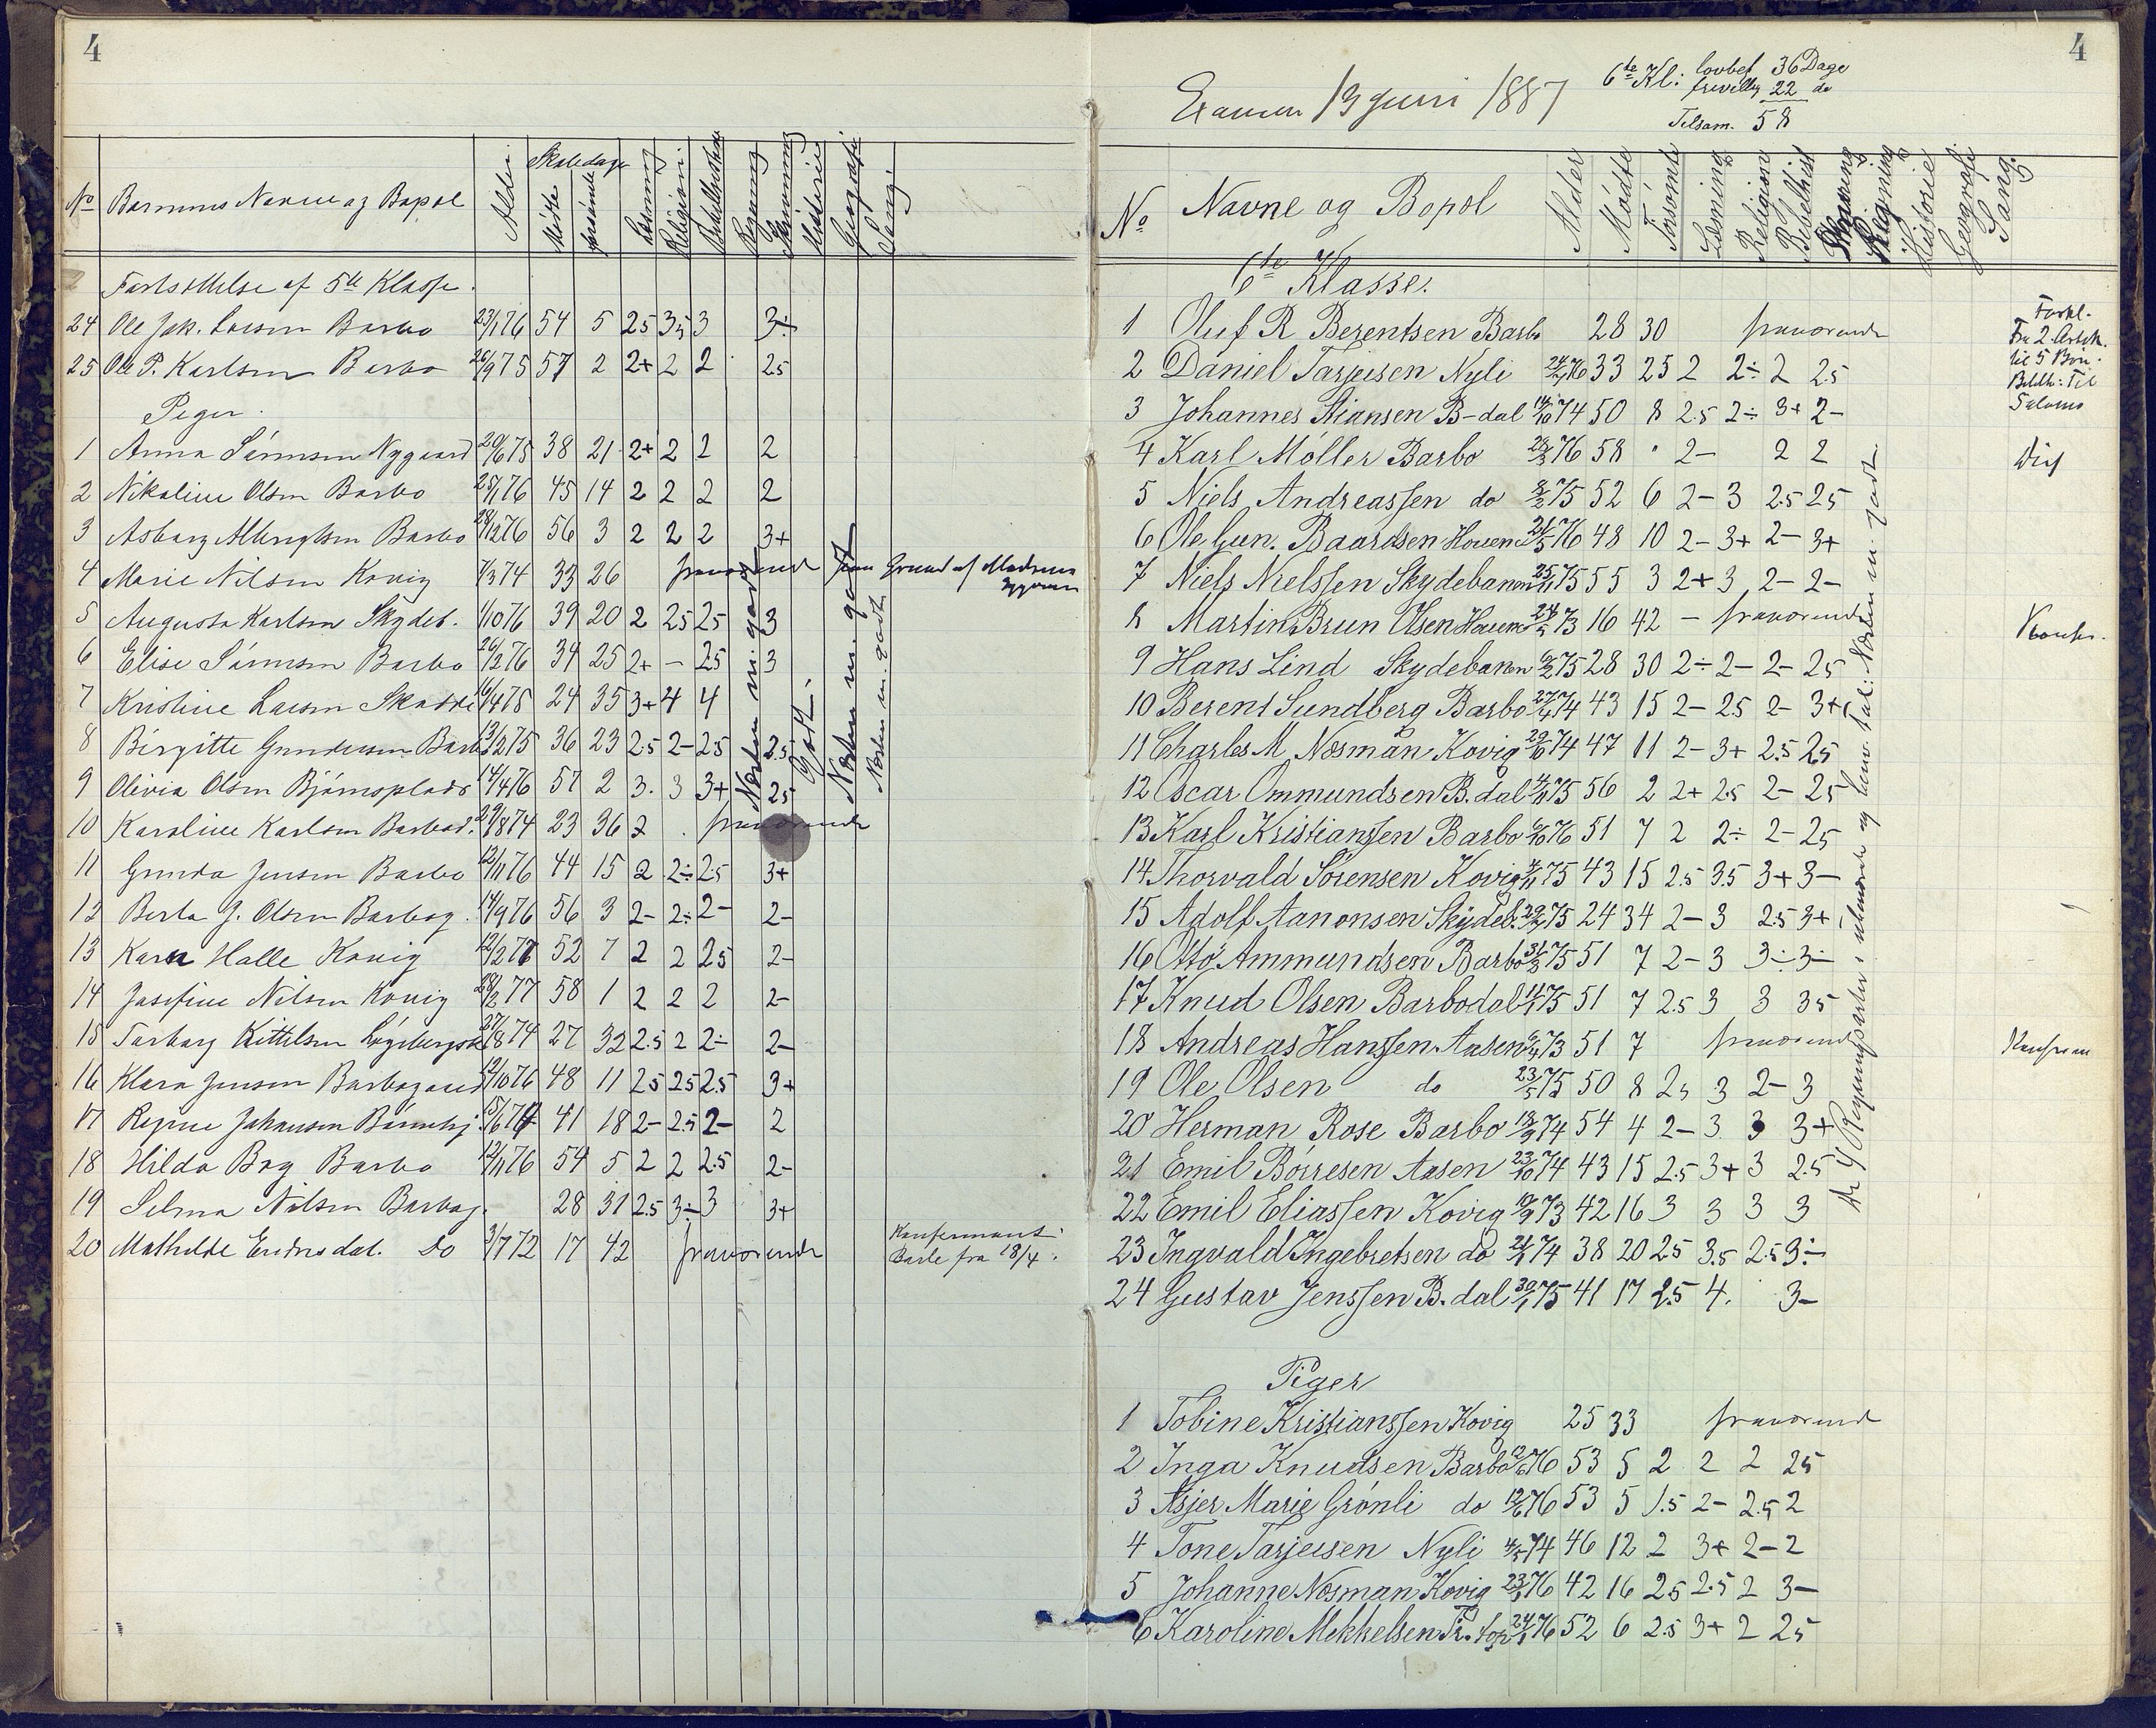 4
No Barnenes Navne og Bopæl Alder Skoledage Mødte forsømte Læsning Religion Bibelhistorie Regning Skrivning Historie Geografi Sang
Fortsættelse af 5te Klasse.
24 Ole Jak. Larsen Barbo 23/1 76 54 5 2.5 3.5 3 3÷
25 Ole P. Karlsen Barbo 26/9 75 57 2 2+ 2 2 2.5
Piger.
1 Anna Sørensen Nygaard 20/6 75 38 21 2+ 2 2 2
2 Nikoline Olsen Barbo 25/1 76 45 14 2 2 2 2
3 Asborg Albregtsen Barbo 28/12 76 56 3 2 2 2 3+
4 Marie Nilsen Kovig 7/3 74 33 26 fraværende paa Grund af Moderens Sygdom
5 Augusta Karlsen Skydeb. 1/10 76 39 20 2 2.5 2.5 3
6 Elise Sørensen Barbo 26/2 76 34 25 2+ – 2.5 3
7 Kristine Larsen 16/4 75 24 35 3+ 4 4
8 Birgitte Gundersen Barb 13/2 75 36 23 2.5 2- 2.5 2.5
9 Olivia Olsen Bjørnsplads 14/4 76 57 2 3. 3 3+ 2.5
10 Karoline Karlsen Barbod. 29/8 74 23 36 2 . fraværende
11 Gunda Jensen Barbo 12/11 76 44 15 2 2÷ 2.5 3+
12 Berta J. Olsen Barbog. 14/9 76 56 3 2- 2÷ 2- 2-
13 Karen Halle Kovig 12/2 77 52 7 2 2 2.5 2-
14 Josefine Nilsen Kovig 28/2 77 58 1 2 2 2 2-
15 Torborg Kittilsen 27/8 74 27 32 2.5 2 2÷ 2-
16 Klara Jensen Barbogaard 12/10 76 48 11 2.5 2.5 2.5 3+
17 Regine Johansen 15/6 74 41 18 2- 2.5 2- 2
18 Hilda Bog Barbo 12/11 76 54 5 2 2 2.5 2-
19 Selma Nilsen Barbog. 28 31 2.5 3÷ 3 3+
20 Mathilde Endresdat. Do 3/7 72 17 42 fraværende Konfermant
Barbo fra 18/4.
Næsten m. godt
Godt.
Næsten m. godt
Næsten m. godt
4
Examen 13 Juni 1887
6te Kl: lovbef 36 Dage
frivillig 22 do
Tilsam. 58
No Navne og Bopæl Alder Mødte Forsømte Læsning Religion Bibelhist Skrivning Regning Historie Geografi Sang.
6te Klasse.
1 Oluf R Berentsen Barbo 28 30 fraværende
2 Daniel Tarjeisen Nyli 24/4 76 33 25 2 2÷ 2 2.5
3 Johannes Stiansen B-dal 14/10 74 50 8 2.5 2÷ 3+ 2-
4 Karl Møller Barbo 28/3 76 58 " 2- 2 2
5 Niels Andreassen do 8/2 75 52 6 2- 3 2.5 2.5
6 Ole Gun. Baardsen Houen 24/5 76 48 10 2- 3+ 2- 3+
7 Niels Nielssen Skydebanen 25/11 75 55 3 2+ 3 2- 2-
8 Martin Brun Olsen Houen 24/5 73 16 42 – fraværende
9 Hans Lind Skydebanen 6/2 75 28 30 2÷ 2- 2- 2.5
10 Berent Sundberg Barbo 27/4 74 43 15 2- 2.5 2- 3+
11 Charles M Næsman Kovig 29/6 74 47 11 2- 3+ 2.5 2.5
12 Oscar Ommundsen B.dal 4/11 75 56 2 2+ 2.5 2- 2.5
13 Karl Kristianssen Barbo 6/10 76 51 7 2 2÷ 2- 2.5
14 Thorvald Sørensen Kovig 4/11 75 43 15 2.5 3.5 3+ 3-
15 Adolf Aanonsen Skydeb. 29/7 75 24 34 2- 3 2.5 3+
16 Otto Ammundsen Barbo 31/3 75 51 7 2- 3 3÷ 3÷
17 Knud Olsen Barbodal 11/1 75 51 7 2.5 3 3 3.5
18 Andreas Hanssen Aasen 6/4 73 51 7 fraværende
19 Ole Olsen do 23/5 75 50 8 2.5 3 2- 3
20 Herman Rose Barbo 18/9 74 54 4 2- 3 3 3+
21 Emil Børresen Aasen 23/10 74 43 15 2.5 3+ 3 2.5
22 Emil Eliassen Kovig 19/9 73 42 16 3 3 3 3
23 Ingvald Ingebretsen do 21/1 74 38 20 2.5 3.5 2.5 3÷
24 Gustav Jenssen B.dal 30/1 75 41 17 2.5 4. 3-
Piger
1 Tobine Kristianssen Kovig 25 33 fraværende
2 Inga Knudsen Barbo 12/6 76 53 5 2 2 2 2.5
3 Asjer Marie Grønli do 12/6 76 53 5 1.5 2- 2.5 2
4 Tone Tarjeisen Nyli 4/5 74 46 12 2 3+ 2- 2
5 Johanne Næsman Kovig 23/1 76 42 16 2.5 2.5 2 3-
6 Karoline Mekkelsen 24/1 76 52 6 2.5 3+ 2 2.5
De 4 Regningsarter i ubenævnte og benv. tal: Næsten m. godt
Forkl.
Fra 2 Artik.
til 5 Bøn.
Bibelh: Til
Salomo
Konfir.